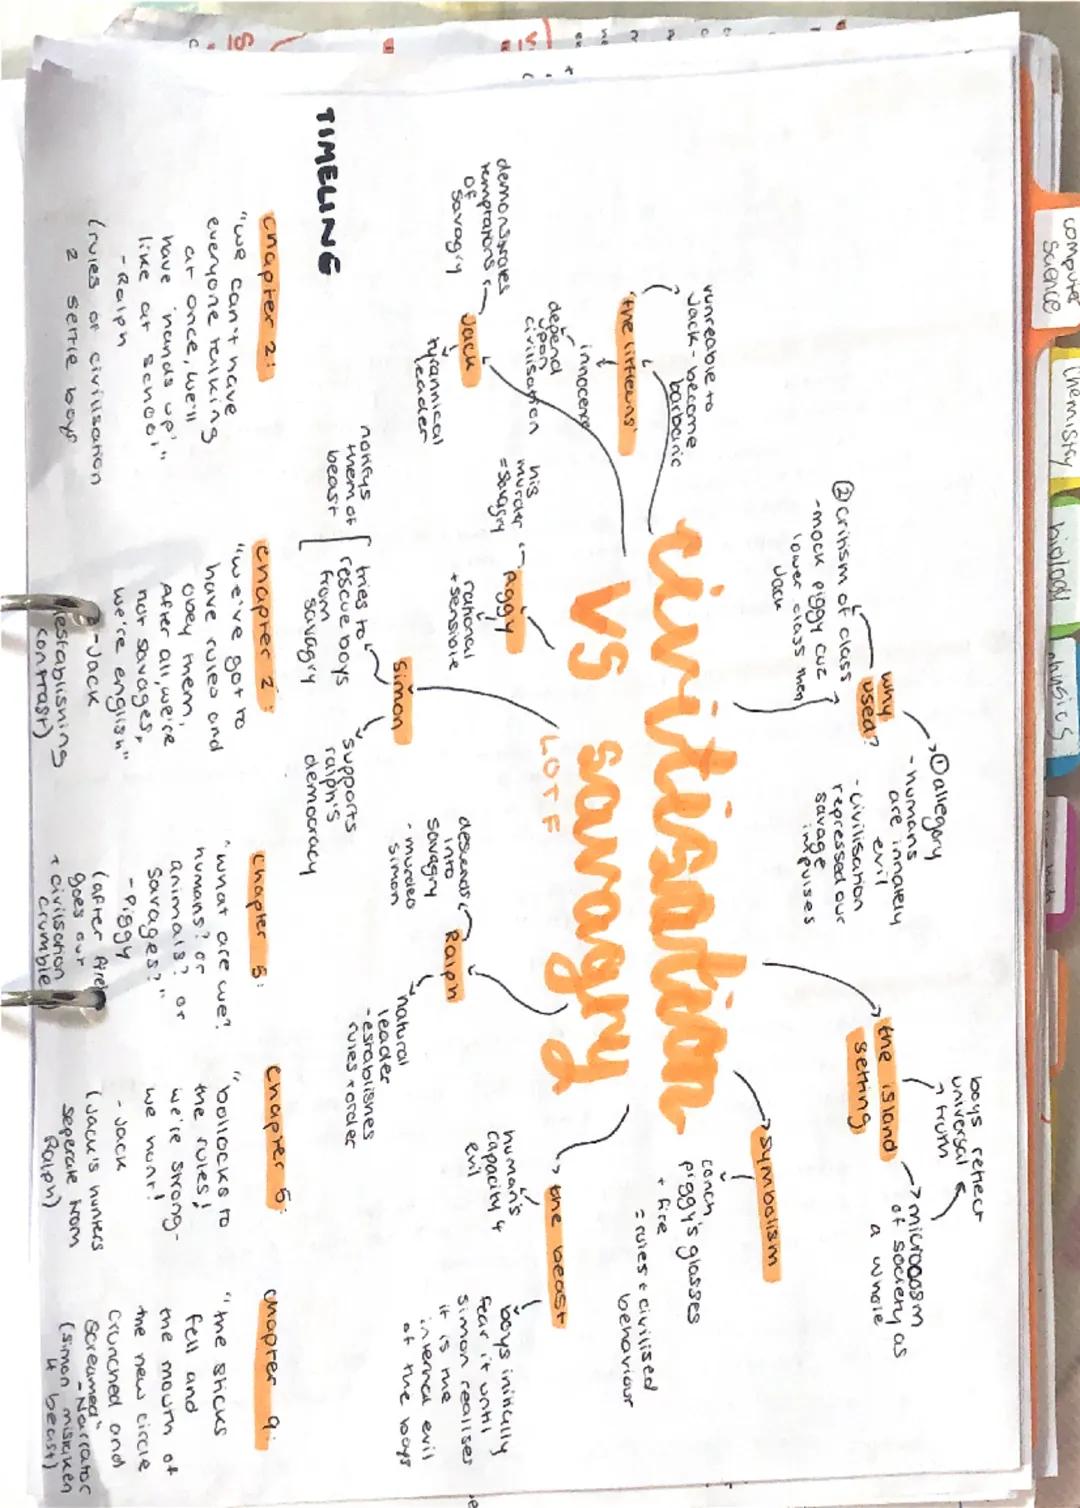 computer
science
chemistry
biology
physics
civilisation
vs savagry
LOTF
why
used?
①allegory
-humans
are innately
evil
-civilisation
repressed our
savage
impulses
②critism of class
-mock piggy cuz
lower class then
Jack
the island
setting
boys reflect
universal
truth
microcosm
of society as
a whole
symbolism
conch
piggy's glasses
+ fire
= rules + civilised
behaviour
the beast
human's
capacity 4
evil
boys initially
fear it until
simon realises
it is the
internal evil
of the boys
Ralph
descends
into
savagry
- murdeo
simon
natural
leader
-establishes
rules + order
simon
tries to
rescue boys
from
savagry
notifys
them of
beast
supports
ralph's
democracy
Piggy
his
murder
=savagry
rational
+ sensible
Jack
demonstrates
temptations
of
savagry
tyrannical
leader
'the littleuns'
vunreable to
Jack - become
barbaric
innocence
depend
upon
civilisation
TIMELINE
chapter 2:
"we can't have
everyone talking
at once, we'll
have 'hands up'
like at school"
- Ralph
(rules of civilisation
2 settle boys
chapter 2:
"we've got to
have rules and
obey them,
After all, we're
not savages,
we're english"
-Jack
establishing
contrast)
chapter 5:
"what are we?
humans? or
animals? or
savages?"
- Piggy
(after fire
goes out
+ civilsation
crumble
chapter 5:
"bollocks to
the rules!
we're strong-
we hunt!
- Jack
(Jack's hunters
seperate from
Ralph)
chapter 9:
"the sticks
fell and
the mouth of
the new circle
crunched and
screamed"
-Narrator
(simon mistaken
4 beast)